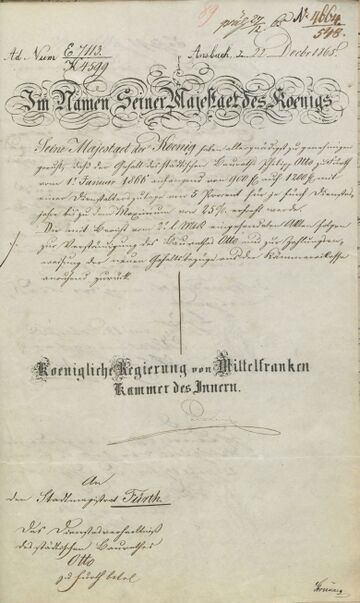 89
präs 27/12 65 No 4664
548.
Ad Num E 7113.
K 4599
Ansbach, d. 22 Decbr 1865
Im Namen Seiner Majestaet des Koenigs
Seine Majestaet der Koenig haben allergnädigst zu genehmigen
geruht, daß der Gehalt des städtischen Bauraths Philipp Otto zu Fürth
vom 1. Januar 1866 anfangend von 900 f. auf 1200 f. mit
einer Dienstalterszulage von 5 Procent für je fünf Dienstes-
jahre bis zu dem Maximum von 25% erhöht werde.
Die mit Bericht vom 2. d. Mts. eingesendeten Akten folgen
zur Verständigung des Baurathes Otto und zur Zahlungsan-
weisung des neuen Gehaltsbezuges an die Kämmereikasse
anruhend zurück.
Koenigliche Regierung von Mittelfranken
Kammer des Innern.
An
den Stadtmagistrat Fürth.
Das Dienstverhältniß
des städtischen Baurathes
Otto
zu Fürth betr.